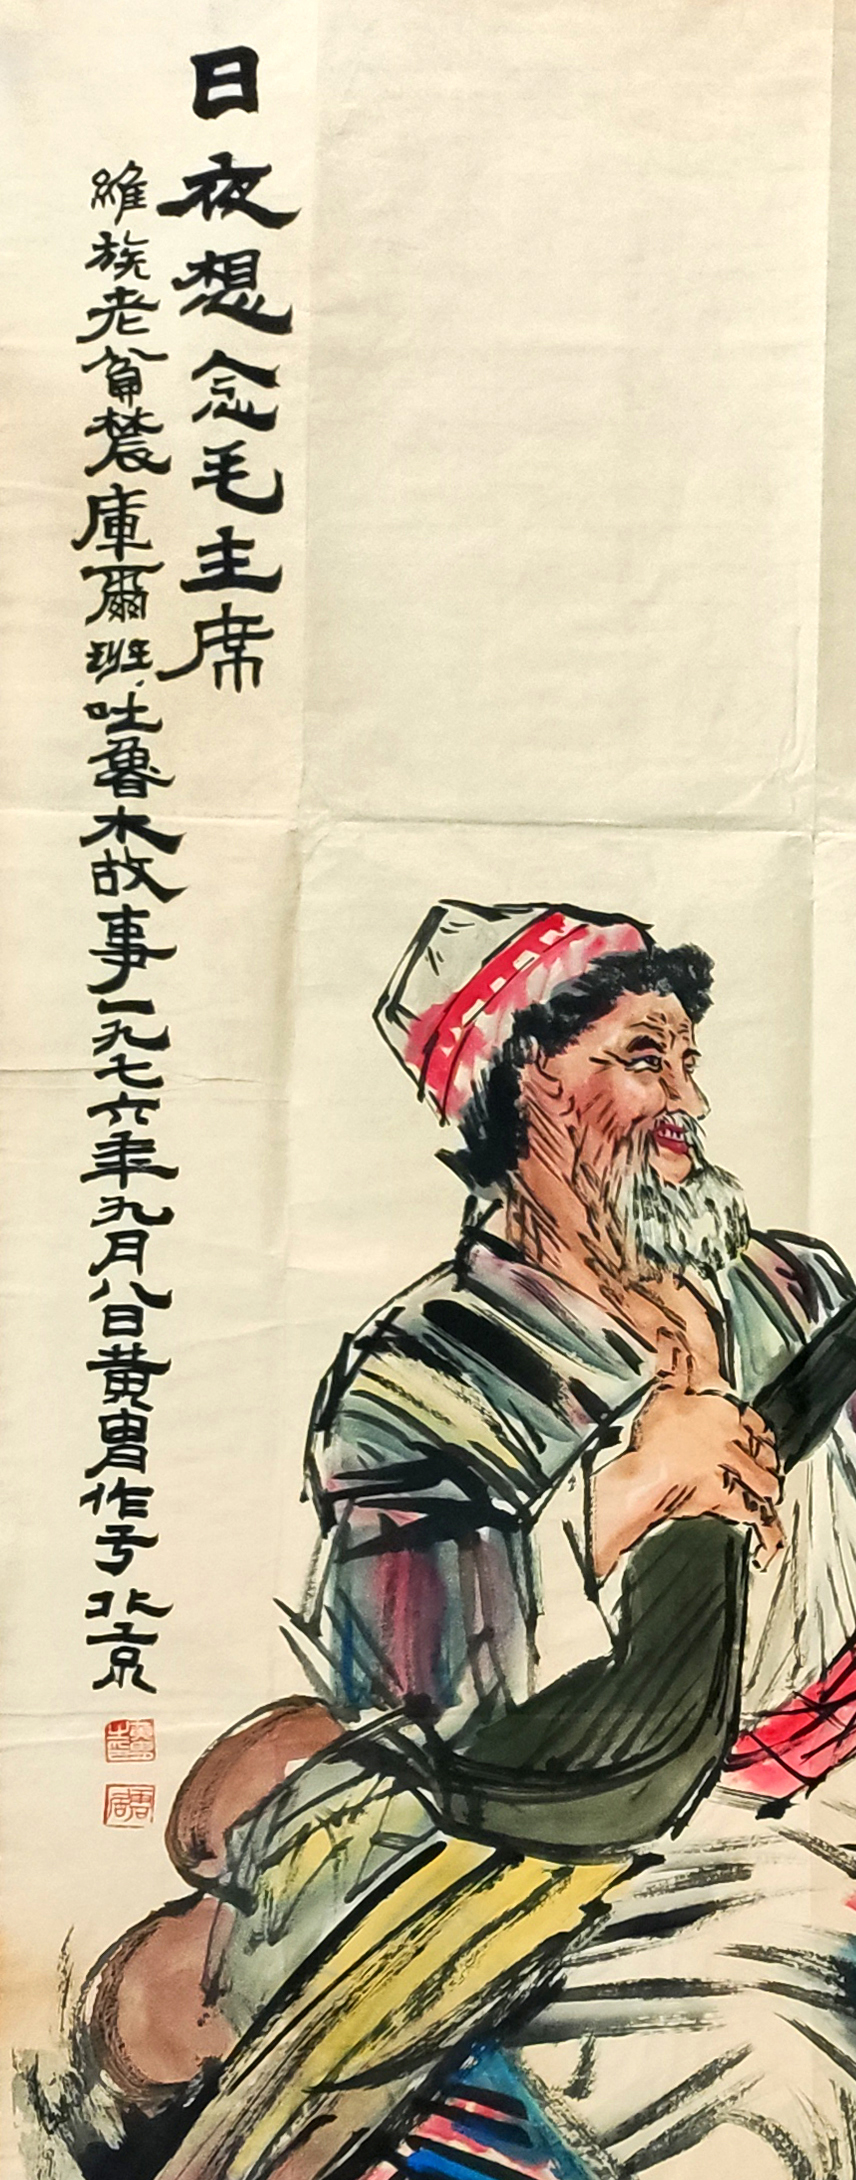 日夜想念毛主席
維族老貧農庫爾班·吐魯木故事一九七六年九月八日黄胄作于北京